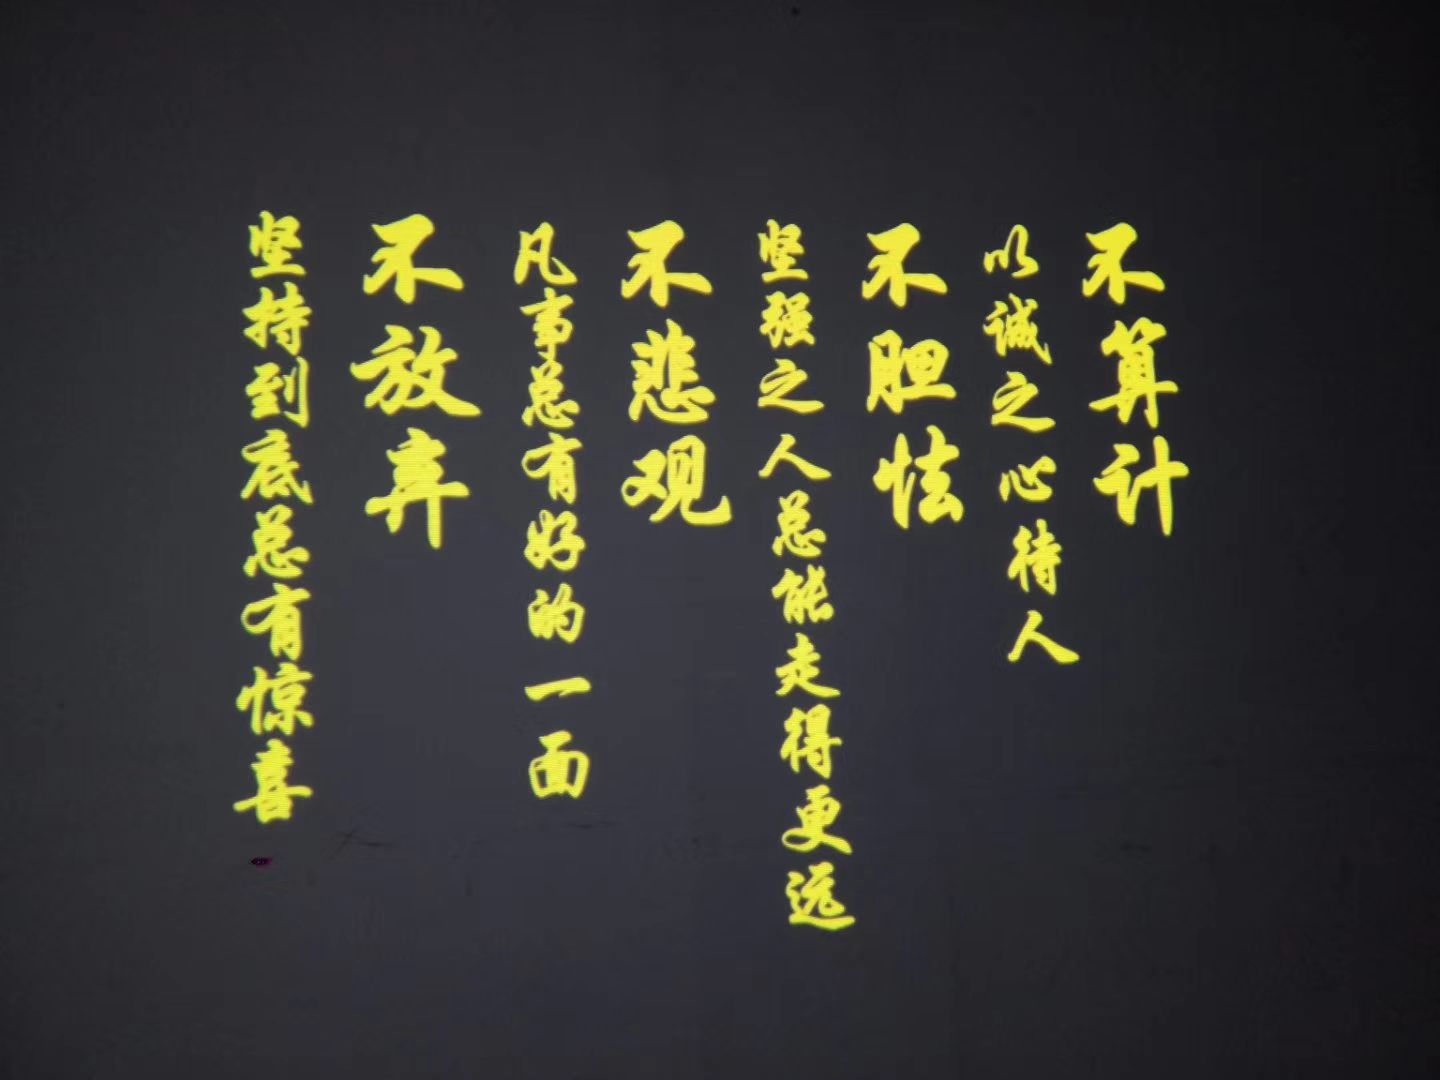 不算计
以诚之心待人
不胆怯
坚强之人总能走得更远
不悲观
凡事总有好的一面
不放弃
坚持到底总有惊喜